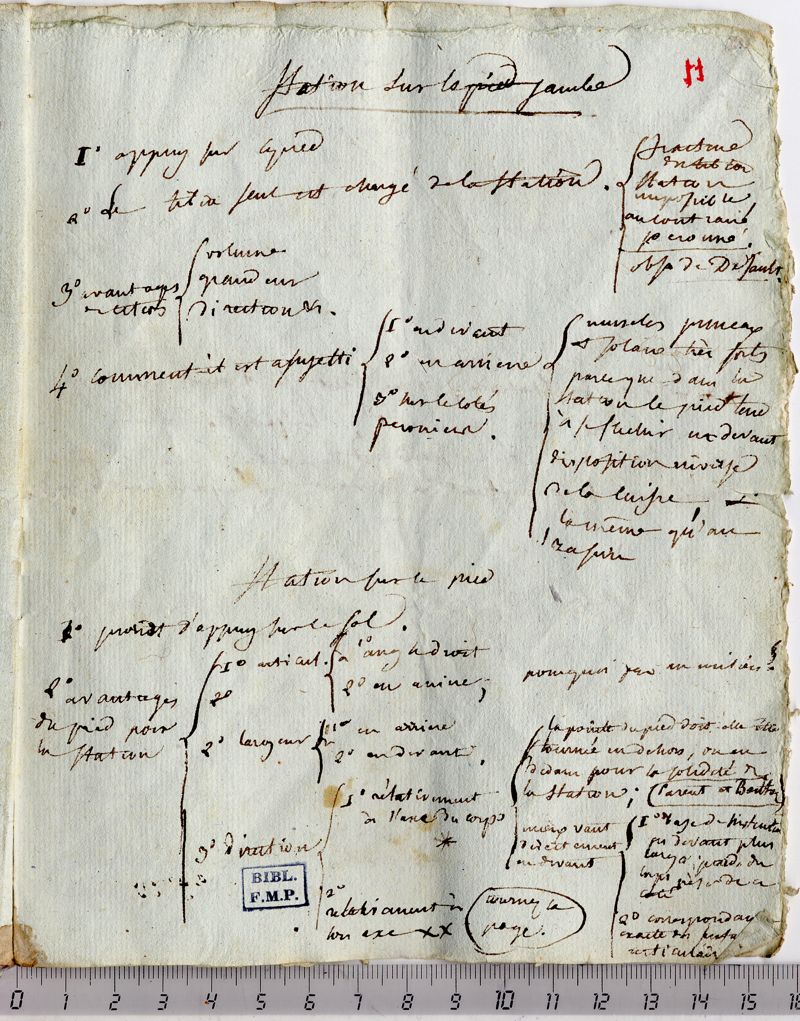 11
Station sur la pied jambe
1° appuy sur le pied
2° Le tibia seul est chargé de la Station.
fracture
du tibia
Station
impossible
au contraire
peroné.
obs. de Desault.
3° avantages
volume
grandeur
direction &c.
4° comment il est assujetti
1° en devant
2° en arriere
3° sur les cotés
peroniers.
muscles jumeaux
et solaire très forts
parce que dans la
Station le pied tend
à se flechir en devant
disposition inverse
de la cuisse
la même qu'au
Station sur le pied
1° point d'appuy sur le sol.
2° avantages
du pied pour
la Station
1° articul.
1° angle droit
2° en arriere;
pourquoi pas au milieu?
2°
2° largeur
1° en arriere
2° en devant.
3° direction
1° relativement
à l'axe du corps
*
2°
relativement à
son axe XX
tournez la
page.
la pointe du pied doit elle être
tournée en dehors, ou en
dedans pour la solidité de
la Station; (Parent et
mieux vaut
directement
en devant
1° base de Sustentation
en devant plus
large; poids du
corps
2° correspondance
exacte des
articulaires
BIBL.
F.M.P.
0 1 2 3 4 5 6 7 8 9 10 11 12 13 14 15 16